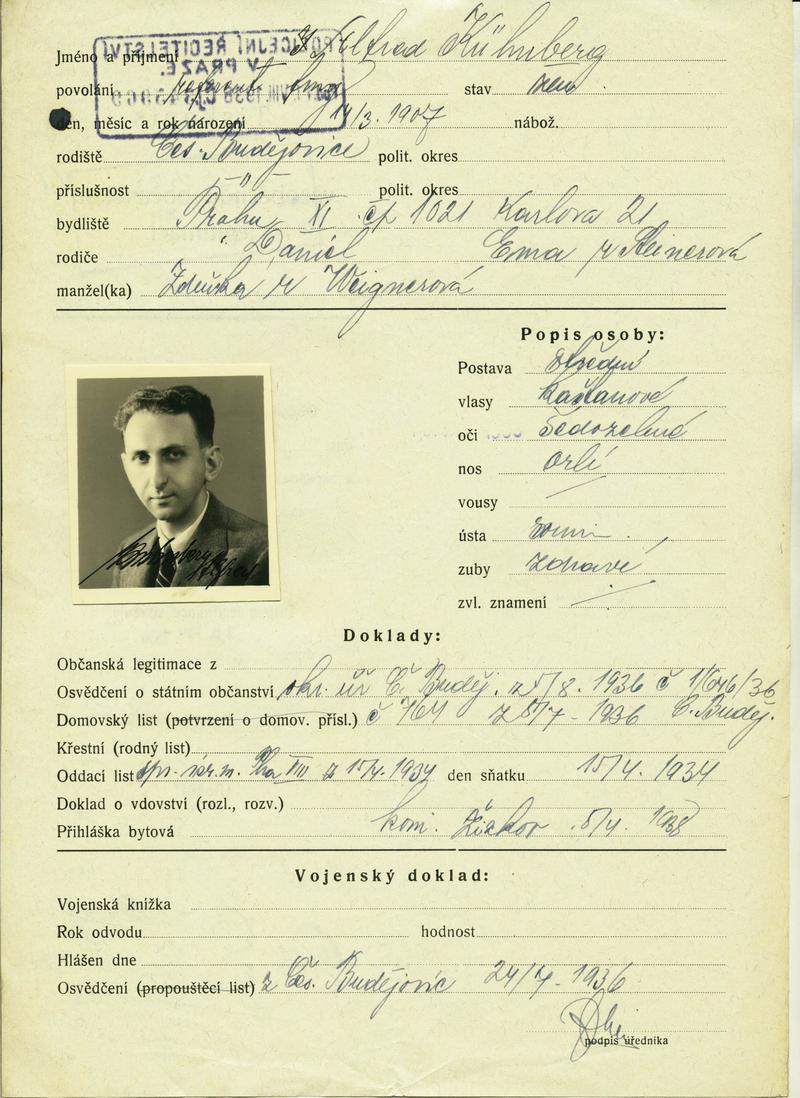 Jméno a příjmení Alfred Kühnberg
povolání referent firmy stav žen.
den, měsíc a rok narození 14/3. 1907 nábož.
rodiště Čes. Budějovice polit. okres
příslušnost -"- polit. okres
bydliště Praha XI čp 1021 Karlova 21
rodiče Daniel Ema r Steinerová
manžel(ka) Zdeňka r Weignerová
Popis osoby:
Postava střední
vlasy kaštanové
oči šedozelené
nos orlí
vousy /
ústa
zuby zdravé
zvl. znamení /
Kühnberg Alfred
Doklady:
Občanská legitimace z
Osvědčení o státním občanství okr. úř Č. Buděj. z 5/8. 1936 č 1646/36
Domovský list (potvrzení o domov. přísl.) č 764 z 8/7 - 1936 Č. Buděj.
Křestní (rodný list)
Oddací list z 15/4. 1934 den sňatku 15/4. 1934
Doklad o vdovství (rozl., rozv.)
Přihláška bytová kom. Žižkov 5/4. 1938
Vojenský doklad:
Vojenská knížka
Rok odvodu hodnost
Hlášen dne
Osvědčení (propouštěcí list) z Čes. Budějovic 24/7 - 1936
podpis úředníka
POLICEJNÍ ŘEDITELSTVÍ
V PRAZE.